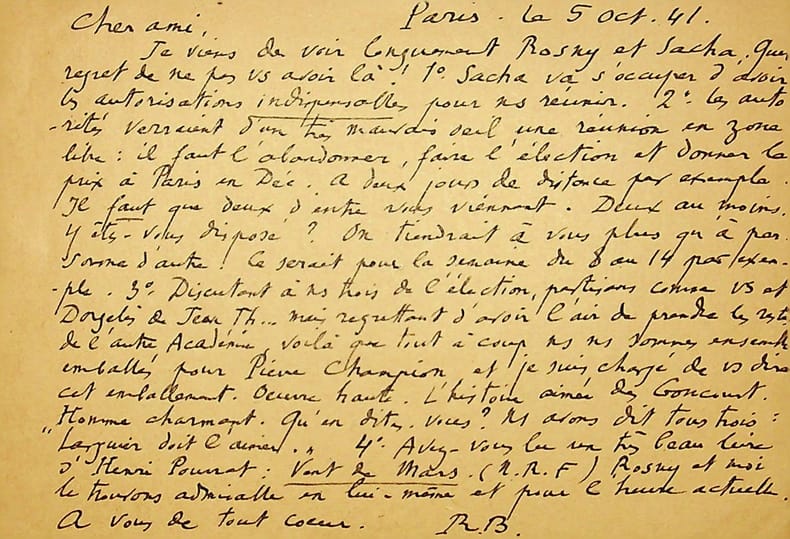 Cher ami, Paris. le 5 Oct. 41.
Je viens de voir longuement Rosny et Sacha. Quel
regret de ne pas vs avoir là ! 1º. Sacha va s'occuper d'avoir
les autorisations indispensables pour ns réunir. 2º. Les auto
-rités verraient d'un très mauvais oeil une réunion en zone
libre : il faut l'abandonner, faire l'élection et donner le
prix à Paris en Déc. A deux jours de distance par exemple.
Il faut que deux d'entre vous viennent. Deux au moins.
Y êtes-vous disposé ? On tiendrait à vous plus qu'à per
sonne d'autre ! Ce serait pour la semaine du 8 au 14 par exem-
-ple. 3º. Discutant à ns trois de l'élection, partisans comme vs et
Dorgelès de Jean Th... mais regrettant d'avoir l'air de prendre les restes
de l'autre Académie, voilà que tout à coup ns ns sommes ensemble
emballés pour Pierre Champion et je suis chargé de vs dire
cet emballement. Oeuvre haute. L'histoire aimée des Goncourt.
"Homme charmant. Qu'en dites-vous ? Ns avons dit tous trois :
Larguier doit l'aimer." 4º. Avez-vous lu un très beau livre
d'Henri Pourrat : Vent de Mars. (N.R.F) Rosny et moi
le trouvons admirable en lui-même et pour l'heure actuelle.
A vous de tout coeur. R.B.